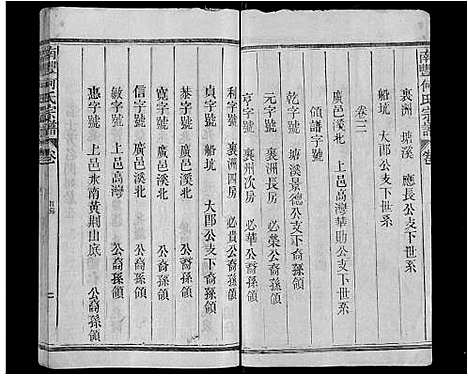 南豐何氏宗譜
襄洲 塘溪 應長公支下世系
船坑 大郎公支下世系
卷三
廣邑溪北 上邑高灣華助公支下世系
領譜字號
乾字號 塘溪景德公支下世系
元字號 襄洲長房 必葉公裔孫領
亨字號 襄洲次房 必華公裔孫領
利字號 襄洲四房 必貴公裔孫領
貞字號 船坑 大郎公裔孫領
恭字號 廣邑溪北 公裔孫領
寬字號 廣邑溪北 公裔孫領
信字號 廣邑溪北 公裔孫領
敏字號 上邑高灣 公裔孫領
惠字號 上邑永南黄荆山底 公裔孫領
南豐何氏宗譜 卷